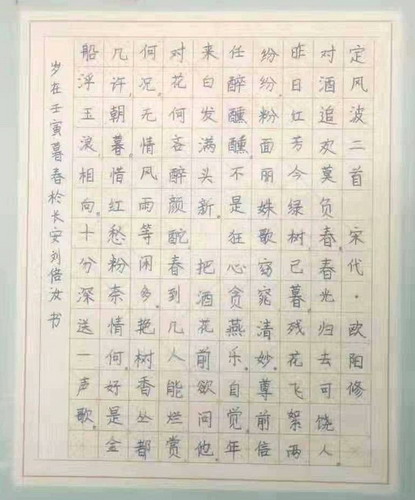 定风波二首 宋代·欧阳修
对酒追欢莫负春。春光归去可饶人。
昨日红芳今绿树。已暮。残花飞絮两
纷纷。粉面丽姝歌窈窕。清妙。尊前信
任醉醺醺。不是狂心贪燕乐。自觉。年
来白发满头新。 把酒花前欲问他。
对花何吝醉颜酡。春到几人能烂赏。
何况。无情风雨等闲多。艳树香丛都
几许。朝暮。惜红愁粉奈情何。好是金
船浮玉浪。相向。十分深送一声歌。
岁在壬寅暮春於长安刘倍汝书